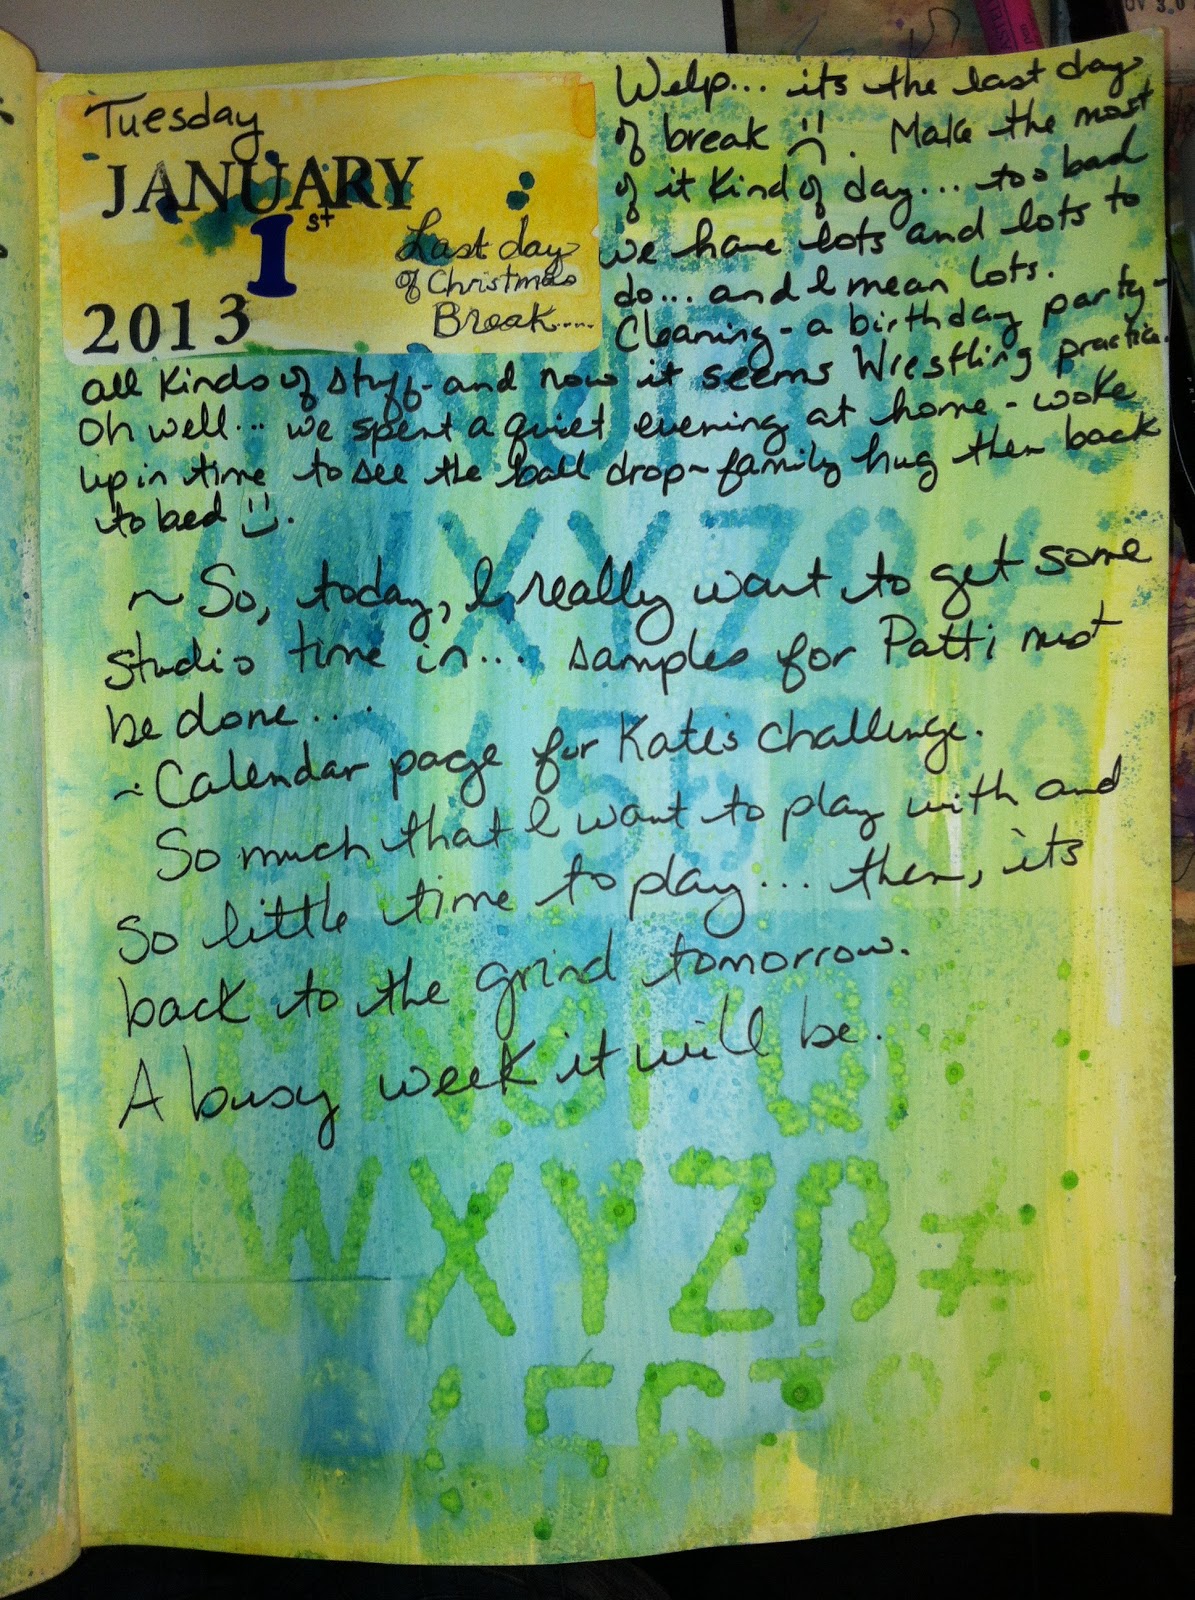 Tuesday
JANUARY
1st
2013
Last day
of Christmas
Break.....
Welp... its the last day
of break :(. Make the most
of it kind of day... too bad
we have lots and lots to
do... and I mean lots.
Cleaning - a birthday party -
all kinds of stuff - and now it seems Wrestling practice.
Oh well... we spent a quiet evening at home - woke
up in time to see the ball drop ~ family hug then back
to bed :).
~ So, today, I really want to get some
studio time in... samples for Patti must
be done....
~ Calendar page for Kate's challenge.
So much that I want to play with and
so little time to play... then, its
back to the grind tomorrow.
A busy week it will be.
WXYZß≠
4567890
WXYZß≠